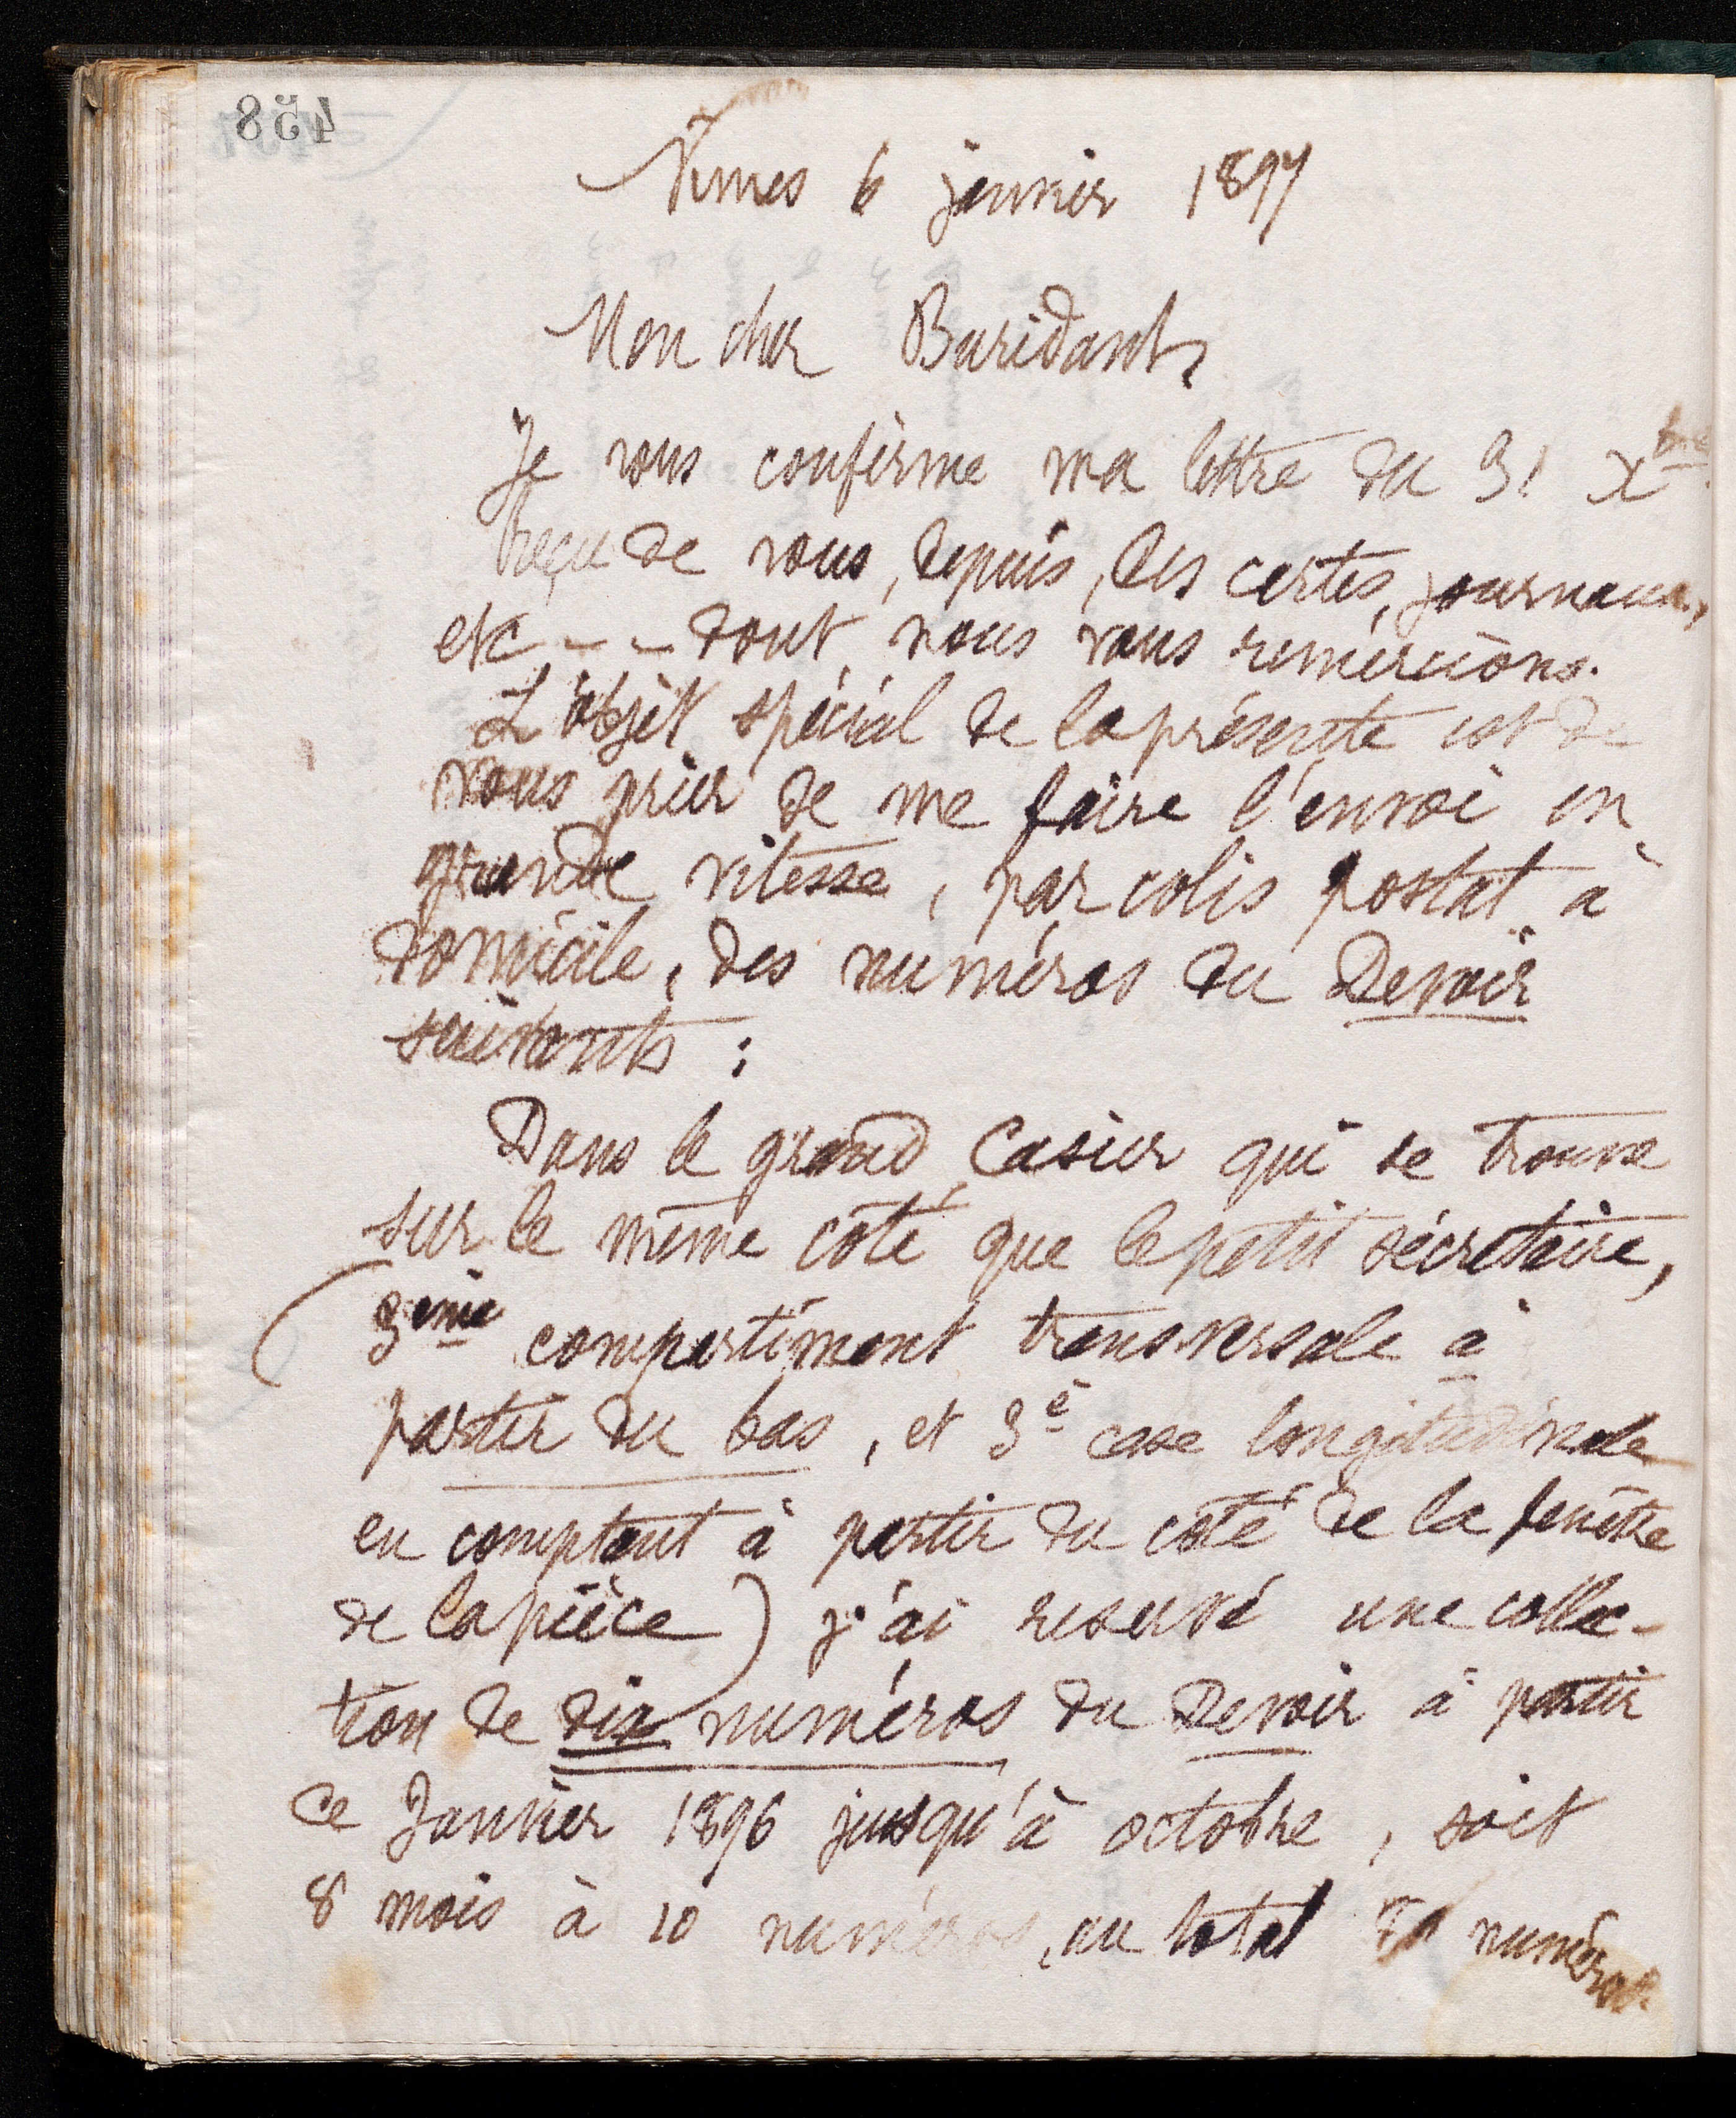 458
Nimes 6 janvier 1897
Mon cher Buridant,
Je vous confirme ma lettre du 31 Xbre.
Reçu de vous, depuis, les cartes, journaux,
etc - - dont nous vous remercions.
L'objet spécial de la présente est de
vous prier de me faire l'envoi en
grande vitesse, par colis postal à
domicile, des numéros du Devoir
suivants :
Dans le grand Casier qui se trouve
sur le même côté que le petit sécretaire,
(3eme compartiment transversale à
partir du bas, et 3e case longitudinale
en comptant à partir du côté de la fenêtre
de la pièce) j'ai reservé une collec-
tion de dix numéros du Devoir à partir
de Janvier 1896 jusqu'à octobre, soit
8 mois à 10 numéros, au total numéros.